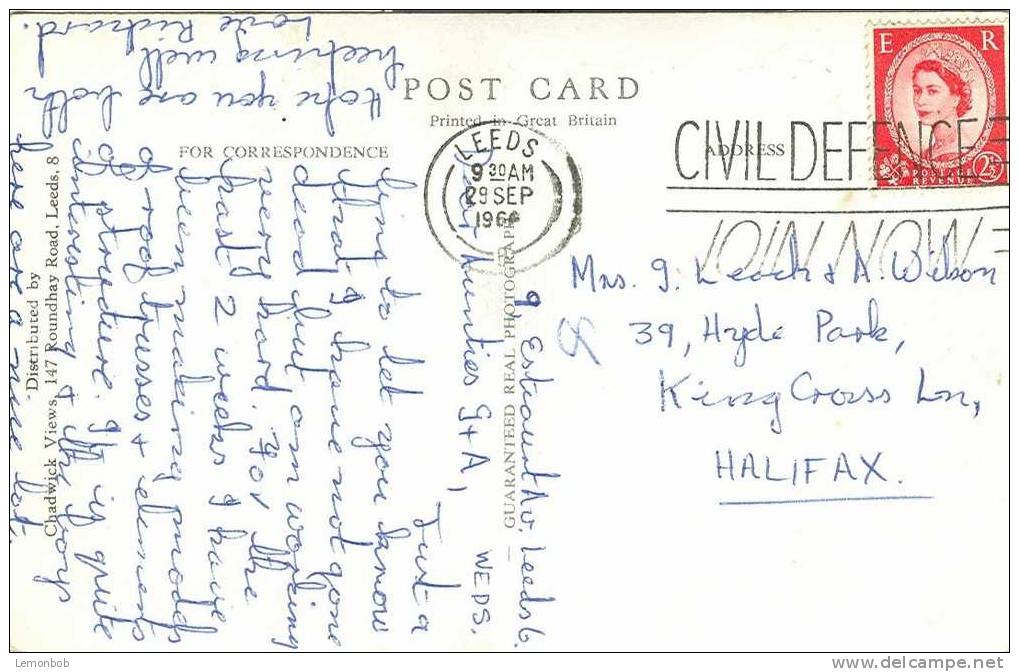 POST CARD
Printed in Great Britain
FOR CORRESPONDENCE
ADDRESS
LEEDS
9 30 AM
29 SEP
196
CIVIL DEFENCE
JOIN NOW
E R
POSTAGE
REVENUE
2½
Mrs. G. Leach & A. Wilson
39, Hyde Park,
King Cross Ln,
HALIFAX.
GUARANTEED REAL PHOTOGRAPH
Distributed by
Chadwick Views, 147 Roundhay Road, Leeds, 8
9, Av. Leeds 6.
WEDS.
Dear Aunties G + A,
Just a
line to let you know
that I have not gone
dead but am working
very hard. For the
past 2 weeks I have
been making models
of roof trusses & elements
of structure. It is quite
interesting & the boys
here are a nice lot.
Hope you are both
keeping well
Love Richard.
© Lemonbob
www.delcampe.net